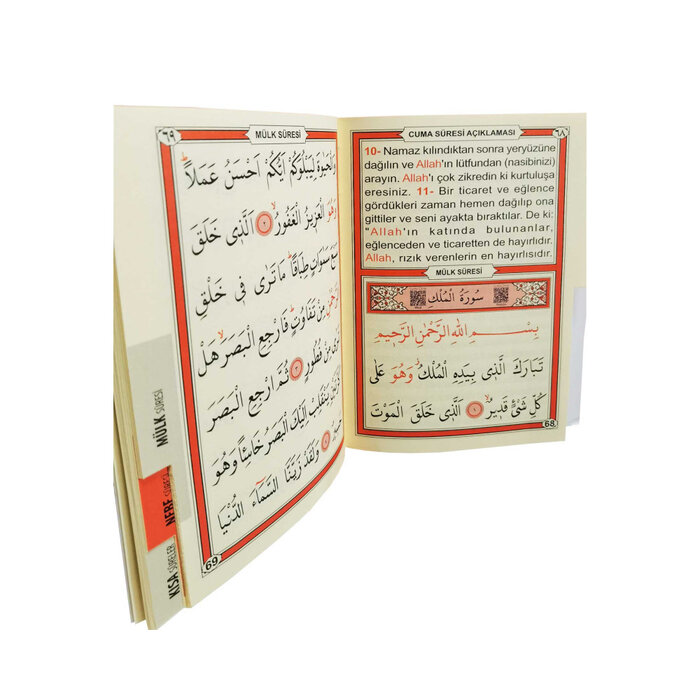 CUMA SÛRESİ AÇIKLAMASI
٦٨
10- Namaz kılındıktan sonra yeryüzüne
dağılın ve Allah'ın lütfundan (nasibinizi)
arayın. Allah'ı çok zikredin ki kurtuluşa
eresiniz. 11- Bir ticaret ve eğlence
gördükleri zaman hemen dağılıp ona
gittiler ve seni ayakta bıraktılar. De ki:
"Allah'ın katında bulunanlar,
eğlenceden ve ticaretten de hayırlıdır.
Allah, rızık verenlerin en hayırlısıdır.
MÜLK SÛRESİ
سُورَةُ الْمُلْكِ
بِسْــمِ اللهِ الرَّحْمٰنِ الرَّحٖيمِ
تَبَارَكَ الَّذٖى بِيَدِهِ الْمُلْكُ وَهُوَ عَلٰى
كُلِّ شَیْءٍ قَدٖيرٌ ۙ ١ اَلَّذٖى خَلَقَ الْمَوْتَ
68
٦٩
MÜLK SÛRESİ
وَالْحَيٰوةَ لِيَبْلُوَكُمْ اَيُّكُمْ اَحْسَنُ عَمَلاًؕ
وَهُوَ الْعَزٖيزُ الْغَفُورُ ۙ ٢ اَلَّذٖى خَلَقَ
سَبْعَ سَمٰوَاتٍ طِبَاقاًؕ مَا تَرٰى فٖى خَلْقِ
الرَّحْمٰنِ مِنْ تَفَاوُتٍؕ فَارْجِعِ الْبَصَرَۙ هَلْ
تَرٰى مِنْ فُطُورٍ ٣ ثُمَّ ارْجِعِ الْبَصَرَ
كَرَّتَيْنِ يَنْقَلِبْ اِلَيْكَ الْبَصَرُ خَاسِئاً وَهُوَ
حَسٖيرٌ ٤ وَلَقَدْ زَيَّنَّا السَّمَٓاءَ الدُّنْيَا
69
MÜLK SÛRESİ
NEBE SÛRESİ
KISA SÛRELER